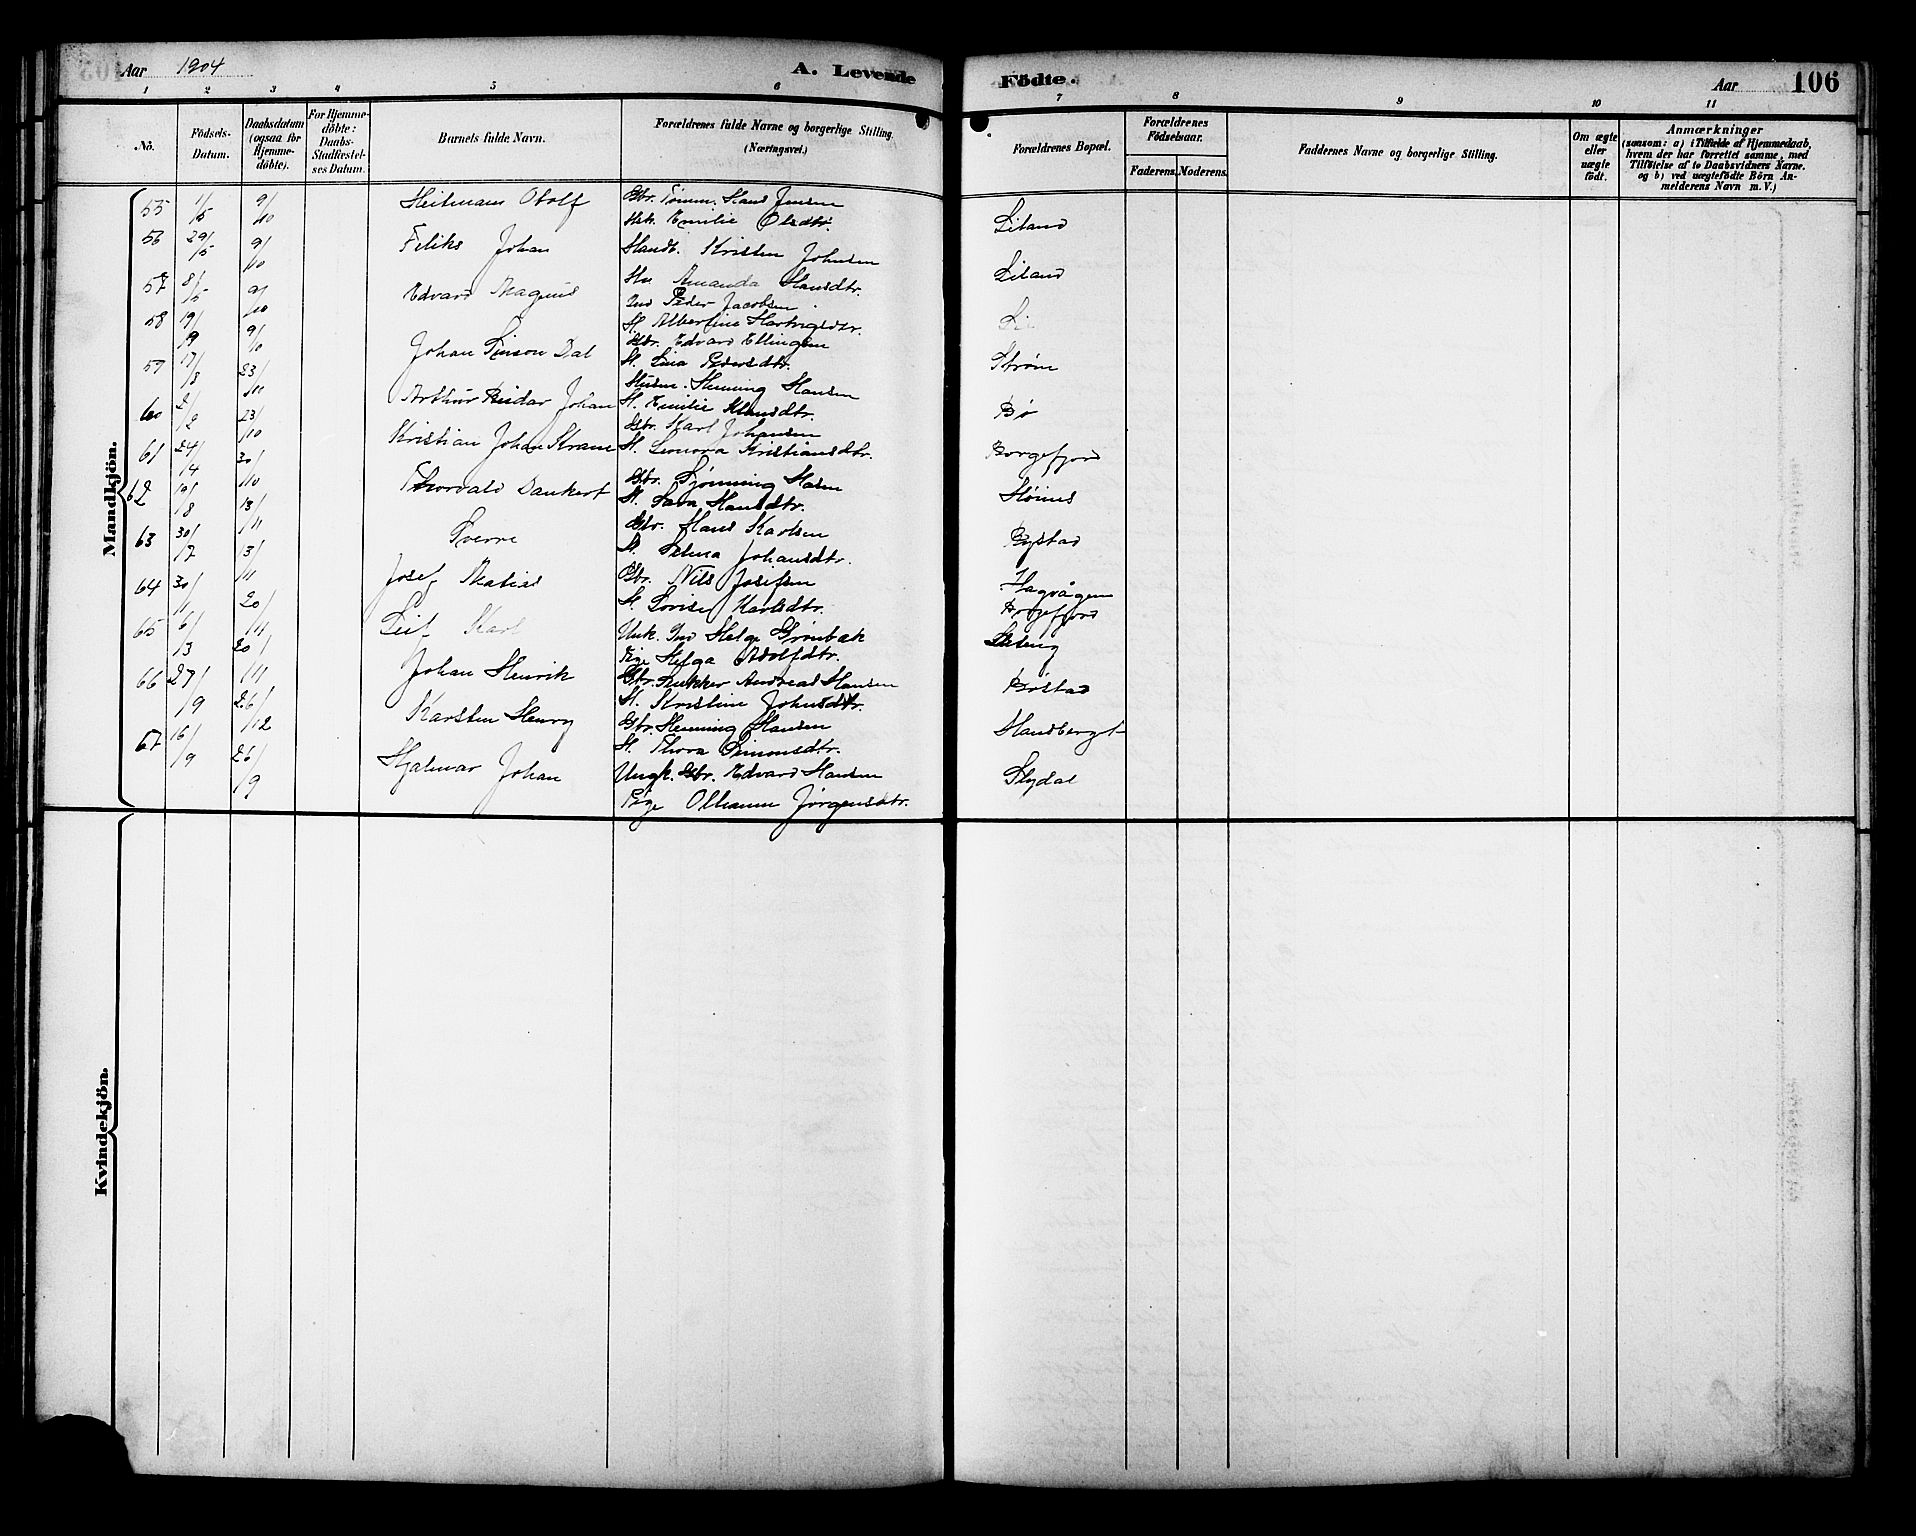 Aar 1904
A. Levende
Födte.
Aar
106
1 2 3 4 5 6 7 8 9 10 11
No.
Födsels-Datum.
Daabsdatum (ogsaa for Hjemme-döbte).
For Hjemme-döbte: Daabs-Stadfæstel-ses Datum.
Barnets fulde Navn.
Forældrenes fulde Navne og borgerlige Stilling. (Næringsvei.)
Forældrenes Bopæl.
Forældrenes Födselsaar.
Faderens. Moderens.
Faddernes Navne og borgerlige Stilling.
Om ægte eller uægte födt.
Anmærkninger
(saasom: a) i Tilfælde af Hjemmedaab,
hvem der har forrettet samme, med
Tilföielse af to Daabsvidners Navne.
og b) ved uægtefödte Börn An-
melderens Navn m. V.)
Mandkjön.
55 1/5 9/10 Heitmann Obolf Gbr. Tømm. Hans Jensen
Emilie Olsdtr. Liland
56 29/5 9/10 Feliks Johan Handl. Kristen Johnsen
Hu. Amanda Hansdtr. Liland
57 8/5 9/10 Edvard Magnus Ind Peder Jacobsen
H. Albertine Hartvigsdtr.
58 19/9 9/10 Johan Simson Dal Gbr. Edvard Ellingsen
H. Lina Pedersdtr. Strøm
59 17/8 23/10 Arthur Reidar Johan Husm. Henning Hansen
H. Emilie Klausdtr. Bø
60 2/2 23/10 Kristian Johan Gbr. Karl Johansen
H. Leonora Kristiansdtr. Borgefjord
61 24/4 30/10 Thorvald Dankert Gbr.
H. Hansdtr.
62 19/8 13/11 Sverre Gbr. Hans Karlsen
H. Selma Johansdtr. Bystad
63 30/7 13/11 Josef Matias Gbr. Nils Josefsen
H. Lovise Karlsdtr. Hagvågen
Borgefjord
64 30/1 20/11 Leif Karl Unk. Ind Helge Grønbæk
Pige Helga Adolfdtr.
65 6/3 20/11 Johan Henrik Gbr. Andreas Hansen
H. Kristine Johnsdtr. Bøstad
66 27/9 26/12 Karsten Henry Gbr. Henning Hansen
H. Thora Simonsdtr. Handberget
67 16/9 26/9 Hjalmar Johan Ungk. Gbr. Edvard Hansen
Pige Jørgensdtr. Slydal
Kvindekjön.